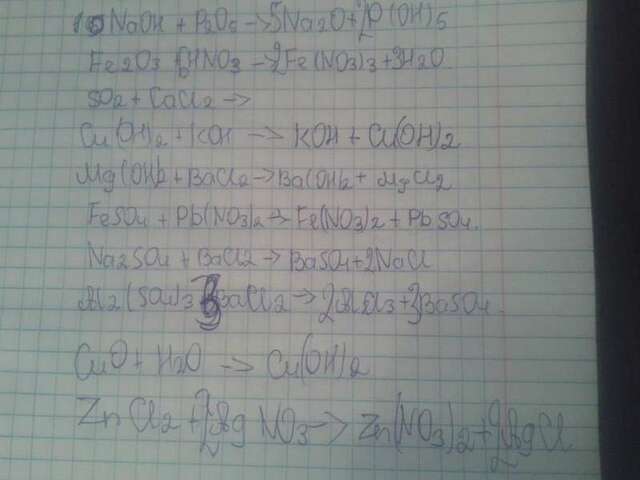 10NaOH + P2O5 -> 5Na2O + 2P(OH)5
Fe2O3 + 6HNO3 - 2Fe(NO3)3 + 3H2O
SO2 + CaCl2 ->
Cu(OH)2 + KOH -> KOH + Cu(OH)2
Mg(OH)2 + BaCl2 -> Ba(OH)2 + MgCl2
FeSO4 + Pb(NO3)2 -> Fe(NO3)2 + PbSO4.
Na2SO4 + BaCl2 -> BaSO4 + 2NaCl
Al2(SO4)3 3BaCl2 -> 2AlCl3 + 3BaSO4.
CuO + H2O -> Cu(OH)2
ZnCl2 + 2AgNO3 -> Zn(NO3)2 + 2AgCl